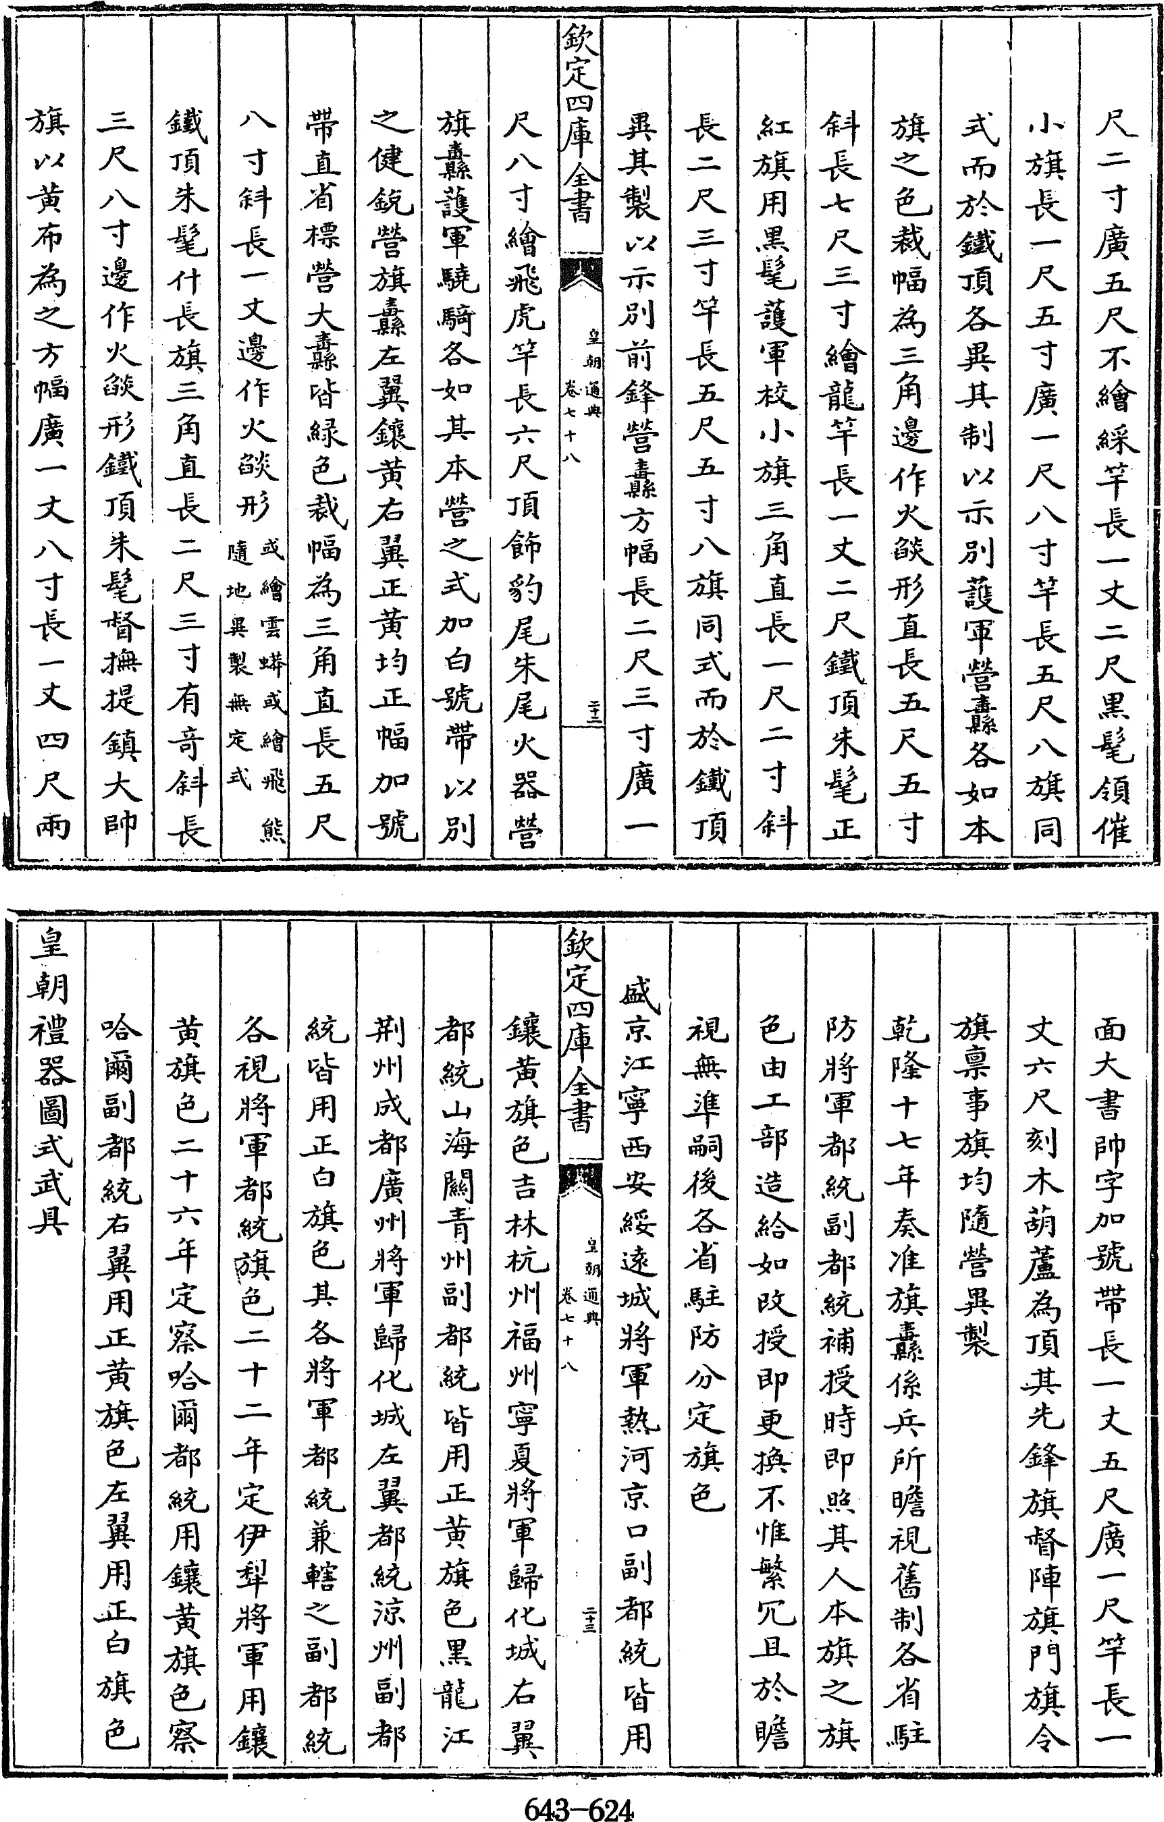 尺二寸廣五尺不繪綵竿長一丈二尺黑髦領催
小旗長一尺五寸廣一尺八寸竿長五尺八旗同
式而於鐵頂各異其制以示別護軍營纛各如本
旗之色裁幅為三角邊作火燄形直長五尺五寸
斜長七尺三寸繪龍竿長一丈二尺鐵頂朱髦正
紅旗用黑髦護軍校小旗三角直長一尺二寸斜
長二尺三寸竿長五尺五寸八旗同式而於鐵頂
異其製以示別前鋒營纛方幅長二尺三寸廣一
欽定四庫全書
皇朝通典
卷七十八
二十三
尺八寸繪飛虎竿長六尺頂飾豹尾朱尾火器營
旗纛護軍驍騎各如其本營之式加白號帶以別
之健銳營旗纛左翼鑲黃右翼正黃均正幅加號
帶直省標營大纛皆綠色裁幅為三角直長五尺
八寸斜長一丈邊作火燄形或繪雲蟒或繪飛熊
隨地異製無定式
鐵頂朱髦什長旗三角直長二尺三寸有奇斜長
三尺八寸邊作火燄形鐵頂朱髦督撫提鎮大帥
旗以黃布為之方幅廣一丈八寸長一丈四尺兩
面大書帥字加號帶長一丈五尺廣一尺竿長一
丈六尺刻木葫蘆為頂其先鋒旗督陣旗門旗令
旗稟事旗均隨營異製
乾隆十七年奏准旗纛係兵所瞻視舊制各省駐
防將軍都統副都統補授時即照其人本旗之旗
色由工部造給如改授即更換不惟繁冗且於瞻
視無準嗣後各省駐防分定旗色
盛京江寧西安綏遠城將軍熱河京口副都統皆用
欽定四庫全書
皇朝通典
卷七十八
二十三
鑲黃旗色吉林杭州福州寧夏將軍歸化城右翼
都統山海關青州副都統皆用正黃旗色黑龍江
荆州成都廣州將軍歸化城左翼都統涼州副都
統皆用正白旗色其各將軍都統兼轄之副都統
各視將軍都統旗色二十二年定伊犂將軍用鑲
黃旗色二十六年定察哈爾都統用鑲黃旗色察
哈爾副都統右翼用正黃旗色左翼用正白旗色
皇朝禮器圖式武具
643-624